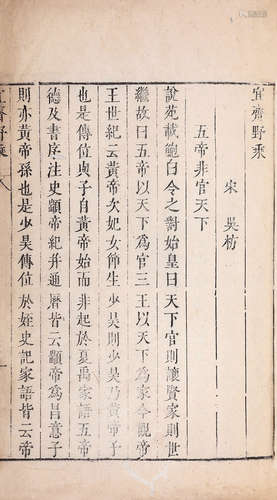 宜齋野乘
宋 吳枋
五帝非官天下
說苑載鮑白令之對始皇曰天下官則讓賢家則世
繼故曰五帝以天下為官三王以天下為家今觀帝
王世紀云黃帝次妃女節生少昊則少昊乃黃帝子
也是傳位與子自黃帝始而非起於夏禹家語五帝
德及書序注史顓帝紀并通曆皆云顓帝為昌意子
則亦黃帝孫也是少昊傳位於姪史記家語皆云帝
宜齋野乘 八